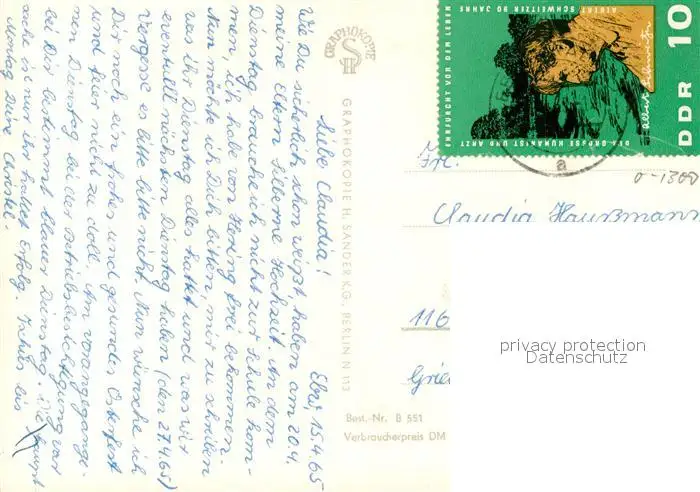 Ebw, 15.4.65
Liebe Claudia!
Wie Du sicherlich schon weißt, haben am 20.4.
meine Eltern Silberne Hochzeit. An dem
Dienstag brauche ich nicht zur Schule kom-
men, ich habe von Hering frei bekommen.
Nun möchte ich Dich bitten, mir zu schreiben
was ihr Dienstag alles hattet und was wir
eventuell nächsten Dienstag haben (den 27.4.65)
Vergesse es bitte bitte nicht. Nun wünsche ich
Dir noch ein frohes und gesundes Osterfest
und feier nicht zu doll. Am vorangegange-
nen Dienstag bei der Betriebsbesichtigung war
bei Dir bestimmt blauer Dienstag. Die Haupt
sache ist nur ihr hattet Erfolg. Tschüs bis
Montag Deine Christel.
GRAPHOKOPIE
SH
GRAPHOKOPIE H. SANDER K.G., BERLIN N 113
EHRFURCHT VOR DEM LEBEN
ALBERT SCHWEITZER 90 JAHRE
DER GROSSE HUMANIST UND ARZT
Albert Schweitzer
DDR 10
a
0-1300
Frl.
Claudia Haußmann
116
Grie
privacy protection
Datenschutz
Best.-Nr. B 551
Verbraucherpreis DM